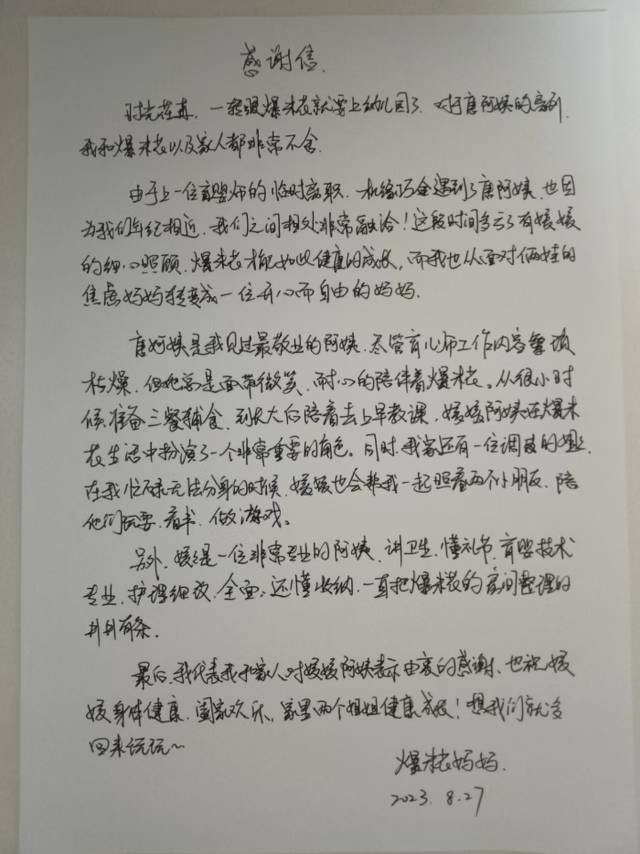 感谢信.
时光荏苒,一转眼爆米花就要上幼儿园了.对于唐阿姨的离别,
我和爆米花以及家人都非常不舍.
由于上一位育婴师的临时离职,机缘巧合遇到了唐阿姨,也因
为我们年纪相近,我们之间相处非常融洽!这段时间多亏了有媛媛
的细心照顾,爆米花才能如此健康的成长,而我也从面对俩娃的
焦虑妈妈转变成一位开心而自由的妈妈.
唐阿姨是我见过最敬业的阿姨,尽管育儿师工作内容繁琐
枯燥,但她总是面带微笑,耐心的陪伴着爆米花。从很小时
候准备三餐辅食,到长大后陪着去上早教课,媛媛阿姨在爆米
花生活中扮演了一个非常重要的角色。同时,我家还有一位调皮的姐姐,
在我忙碌无法分身的时候,媛媛也会帮我一起照看两个小朋友,陪
他们玩耍、看书、做游戏。
另外,媛媛是一位非常专业的阿姨,讲卫生、懂礼节、育婴技术
专业、护理细致、全面;还懂收纳,一直把爆米花的房间整理的
井井有条.
最后,我代表我和家人对媛媛阿姨表示由衷的感谢、也祝媛
媛身体健康,阖家欢乐,家里两个姐姐健康成长!想我们就多
回来玩玩~
爆米花妈妈.
2023.8.27